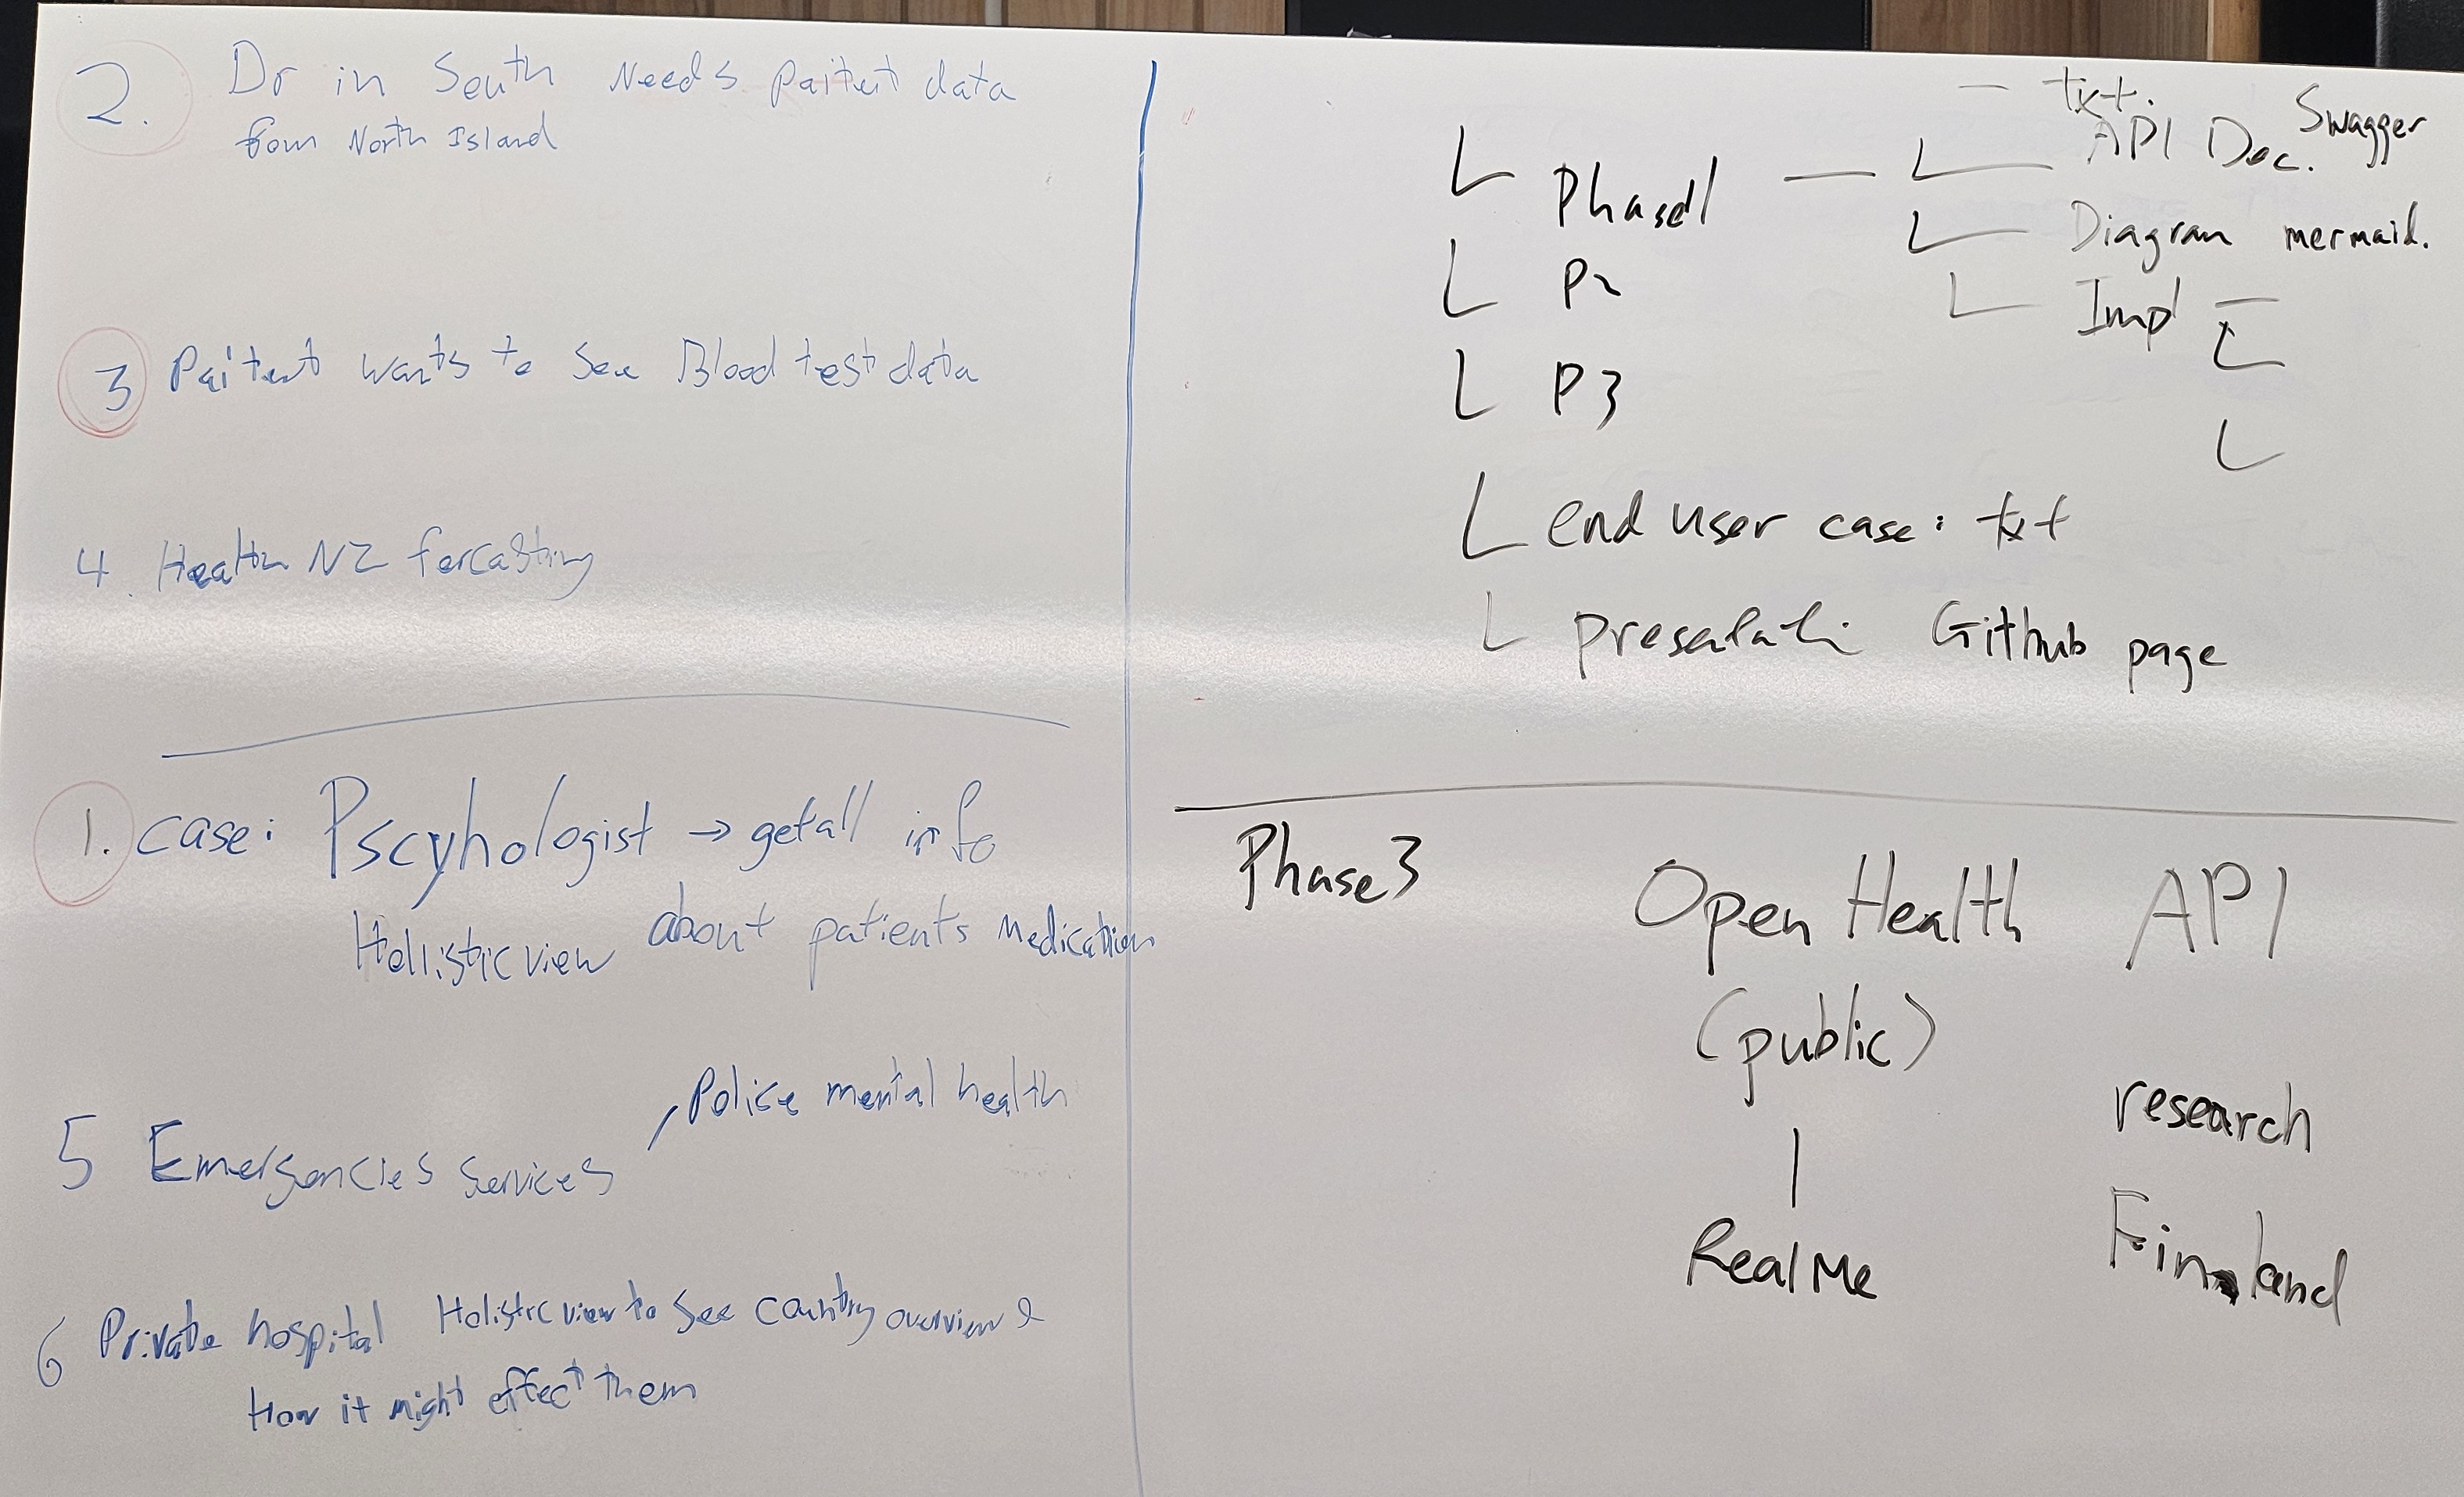 2. Dr in South Needs Paitent data
from North Island
3 Paitent wants to See Blood test data
4. Health NZ forcasting
1. case: Pscyhologist → get all info
Holistic view about patients Medications
5 Emergencies Services , Police mental health
6 Private hospital Holistic view to See country overview &
How it might effect them
— txt.
L Phase 1 — L API Doc. Swagger
L Diagram mermaid.
L P2
L Impl —
L
L P3
L
L end user case: txt
L Github page
Phase 3 Open Health API
(public)
research
|
RealMe Finland